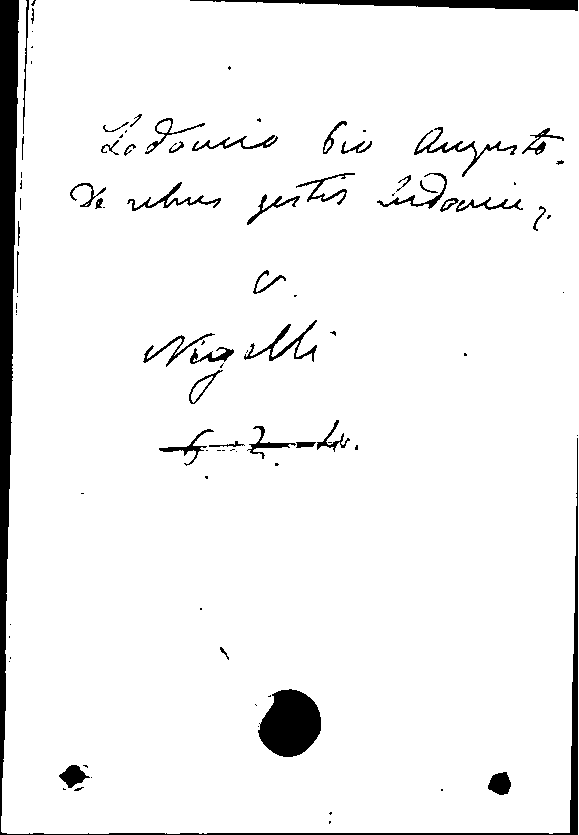 Lodovico Pio Augusto.
De rebus gestis Ludovici
v.
Nigelli